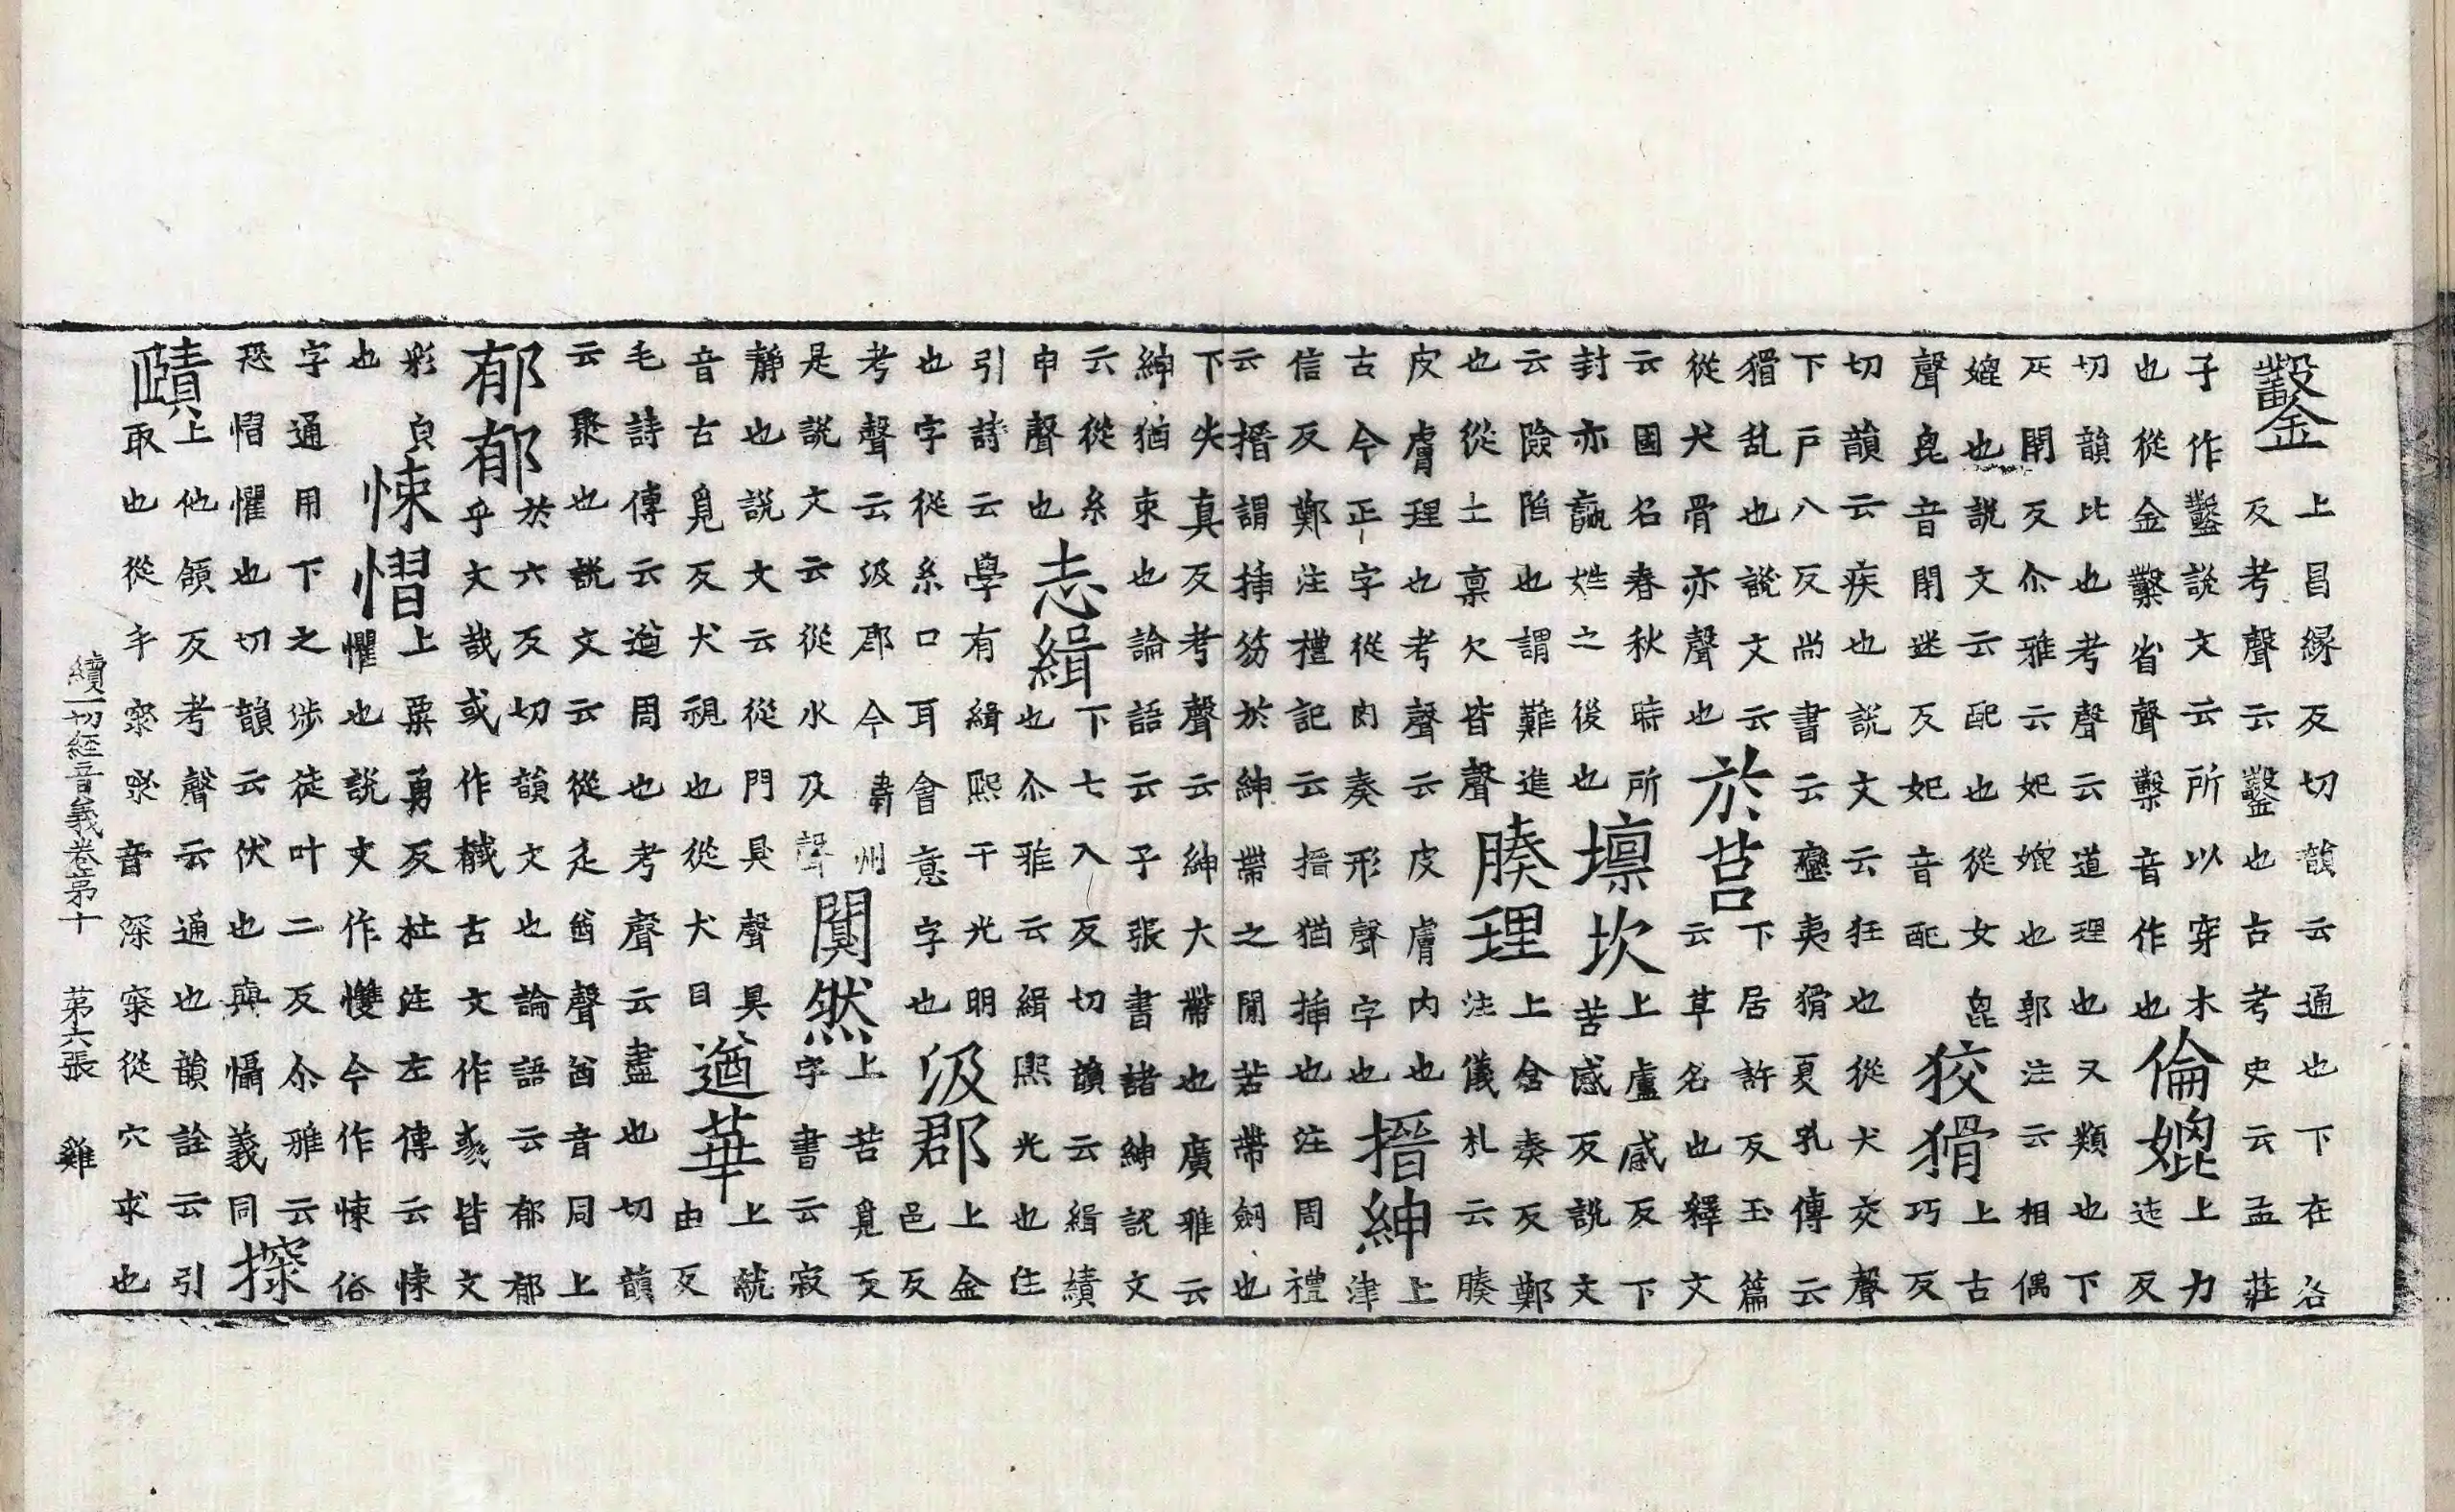 鑿上昌縁反切韻云通也下在各
反考聲云鑿也古考史云孟莊
子作鑿說文云所以穿木
也從金鑿省聲鑿音作也
倫媲上力
迍反
切韻比也考聲云道理也又類也下
疋閇反尒雅云妃媲也郭注云相偶
媲也說文云配也從女毘
聲毘音閇迷反妃音配
狡猾上古
巧反
切韻云疾也說文云狂也從犬交聲
下戶八反尚書云蠻夷猾夏孔傳云
猾乱也說文云
從犬骨亦聲也
於莒下居許反玉篇
云草名也釋文
云國名春秋時所
封亦嬴姓之後也
壈坎上盧感反下
苦感反說文
云險陷也謂難進
也從土稟欠皆聲
腠理上倉奏反鄭
注儀札云腠
皮膚理也考聲云皮膚内也
古今正字從肉奏形聲字也
搢紳上
津
信反鄭注禮記云搢猶挿也注周禮
云搢謂挿笏於紳帶之間若帶劒也
下失真反考聲云紳大帶也廣雅云
紳猶束也論語云子張書諸紳說文
云從糸
申聲也
志緝下七入反切韻云緝績
也尒雅云緝熙光也注
引詩云學有緝熙于光明
也字從糸口耳會意字也
汲郡上金
邑反
考聲云汲郡今衛州
是說文云從水及聲
闃然上苦覓反
字書云寂
靜也說文云從門具聲具
音古覓反犬視也從犬目
遒華上就
由反
毛詩傳云遒周也考聲云盡也切韻
云聚也說文云從辵酋聲酋音同上
郁郁於六反切韻文也論語云郁郁
乎文哉或作棫古文作彧皆文
彩㒵
也
悚慴上粟勇反杜注左傳云悚
懼也說文作愯今作悚俗
字通用下之涉徒叶二反尒雅云
恐慴懼也切韻云伏也與懾義同
探
賾上他頷反考聲云通也韻詮云引
取也從手罙罙音深罙從穴求也
續一切經音義卷苐十 苐六張 雞